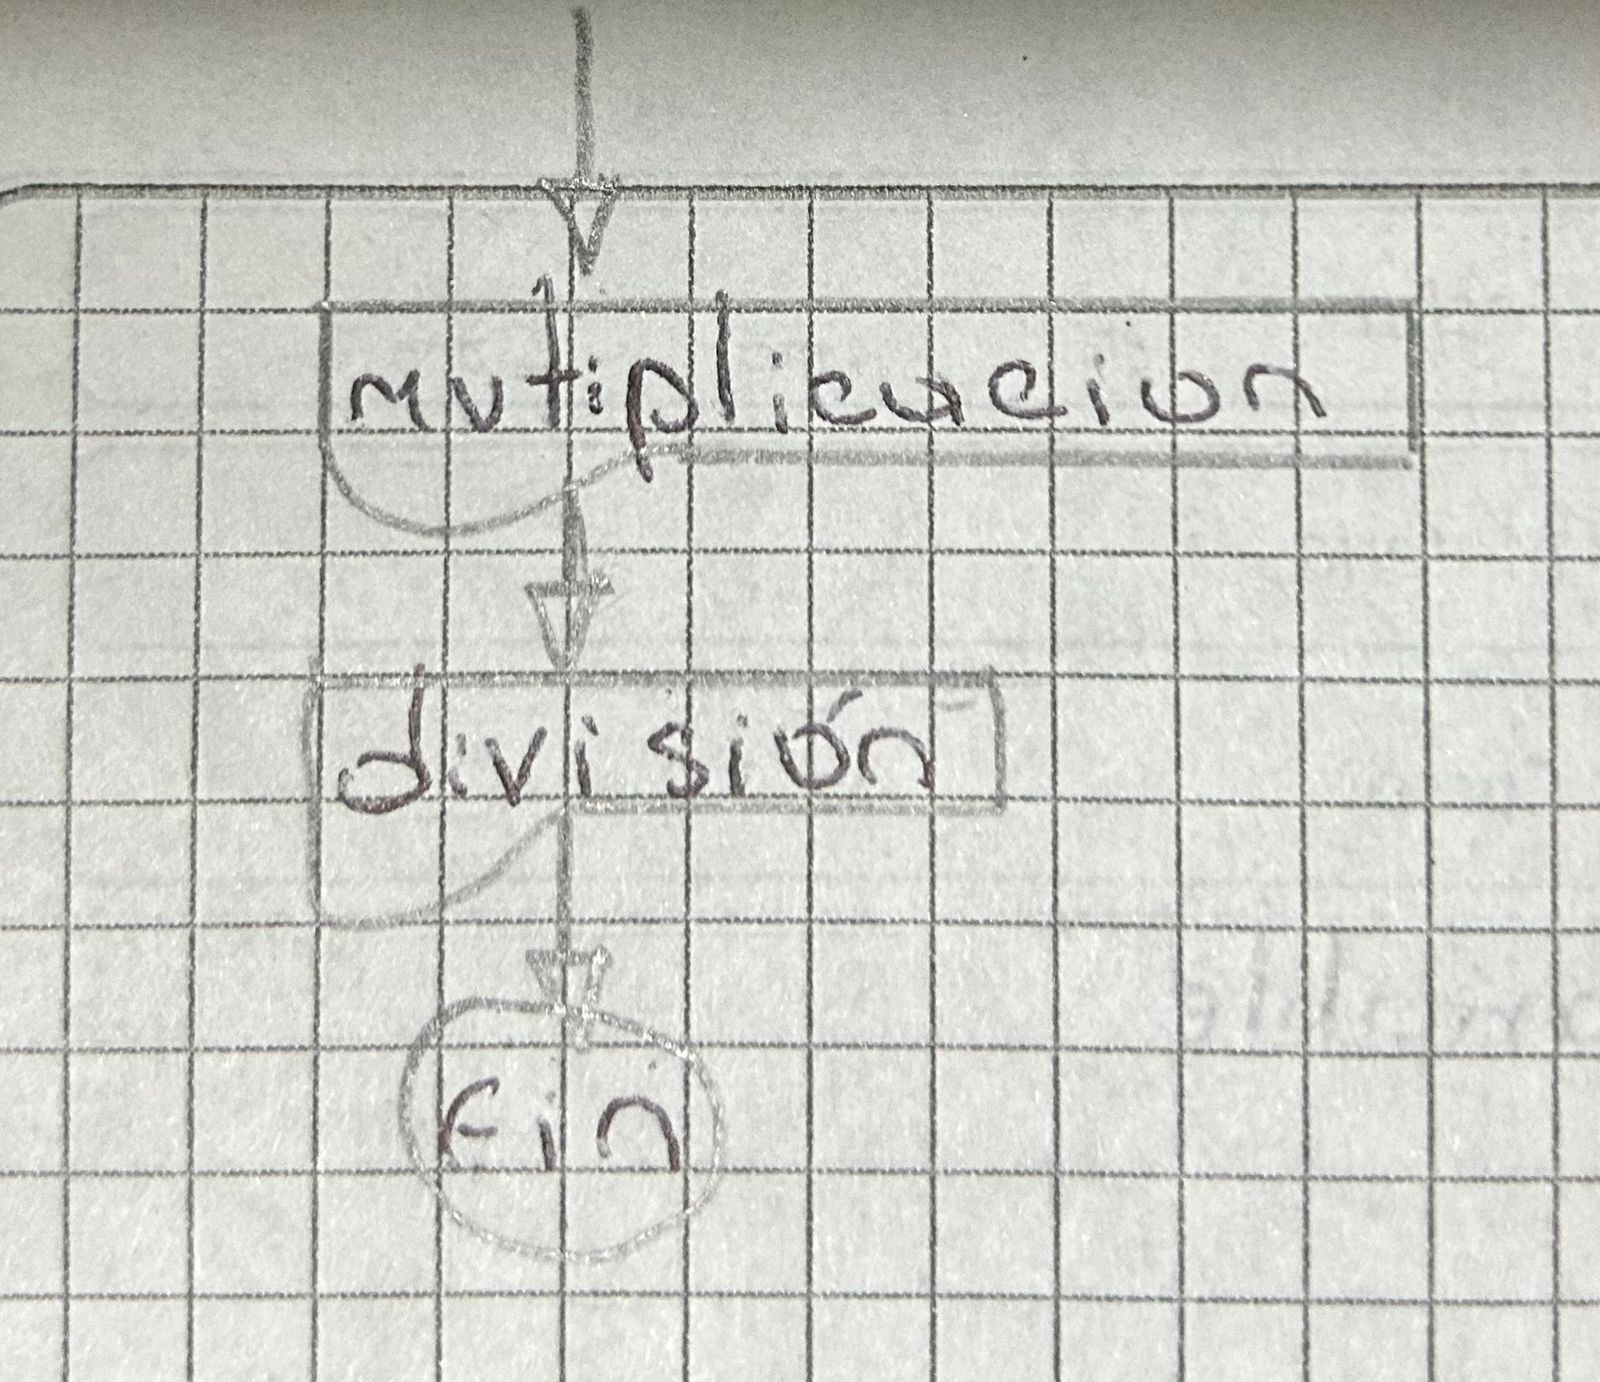 mutiplicacion
división
fin